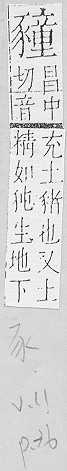 昌中
切音
充土豬也又土
精如㹠生地下
豕
v.11